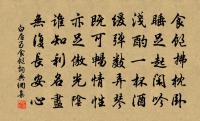 食飽拂枕卧
睡足起閑吟
淺酌一杯酒
緩彈數弄琴
既可暢情性
亦足傲光陰
誰知利名盡
無復長安心
白居易食飽詞典網集